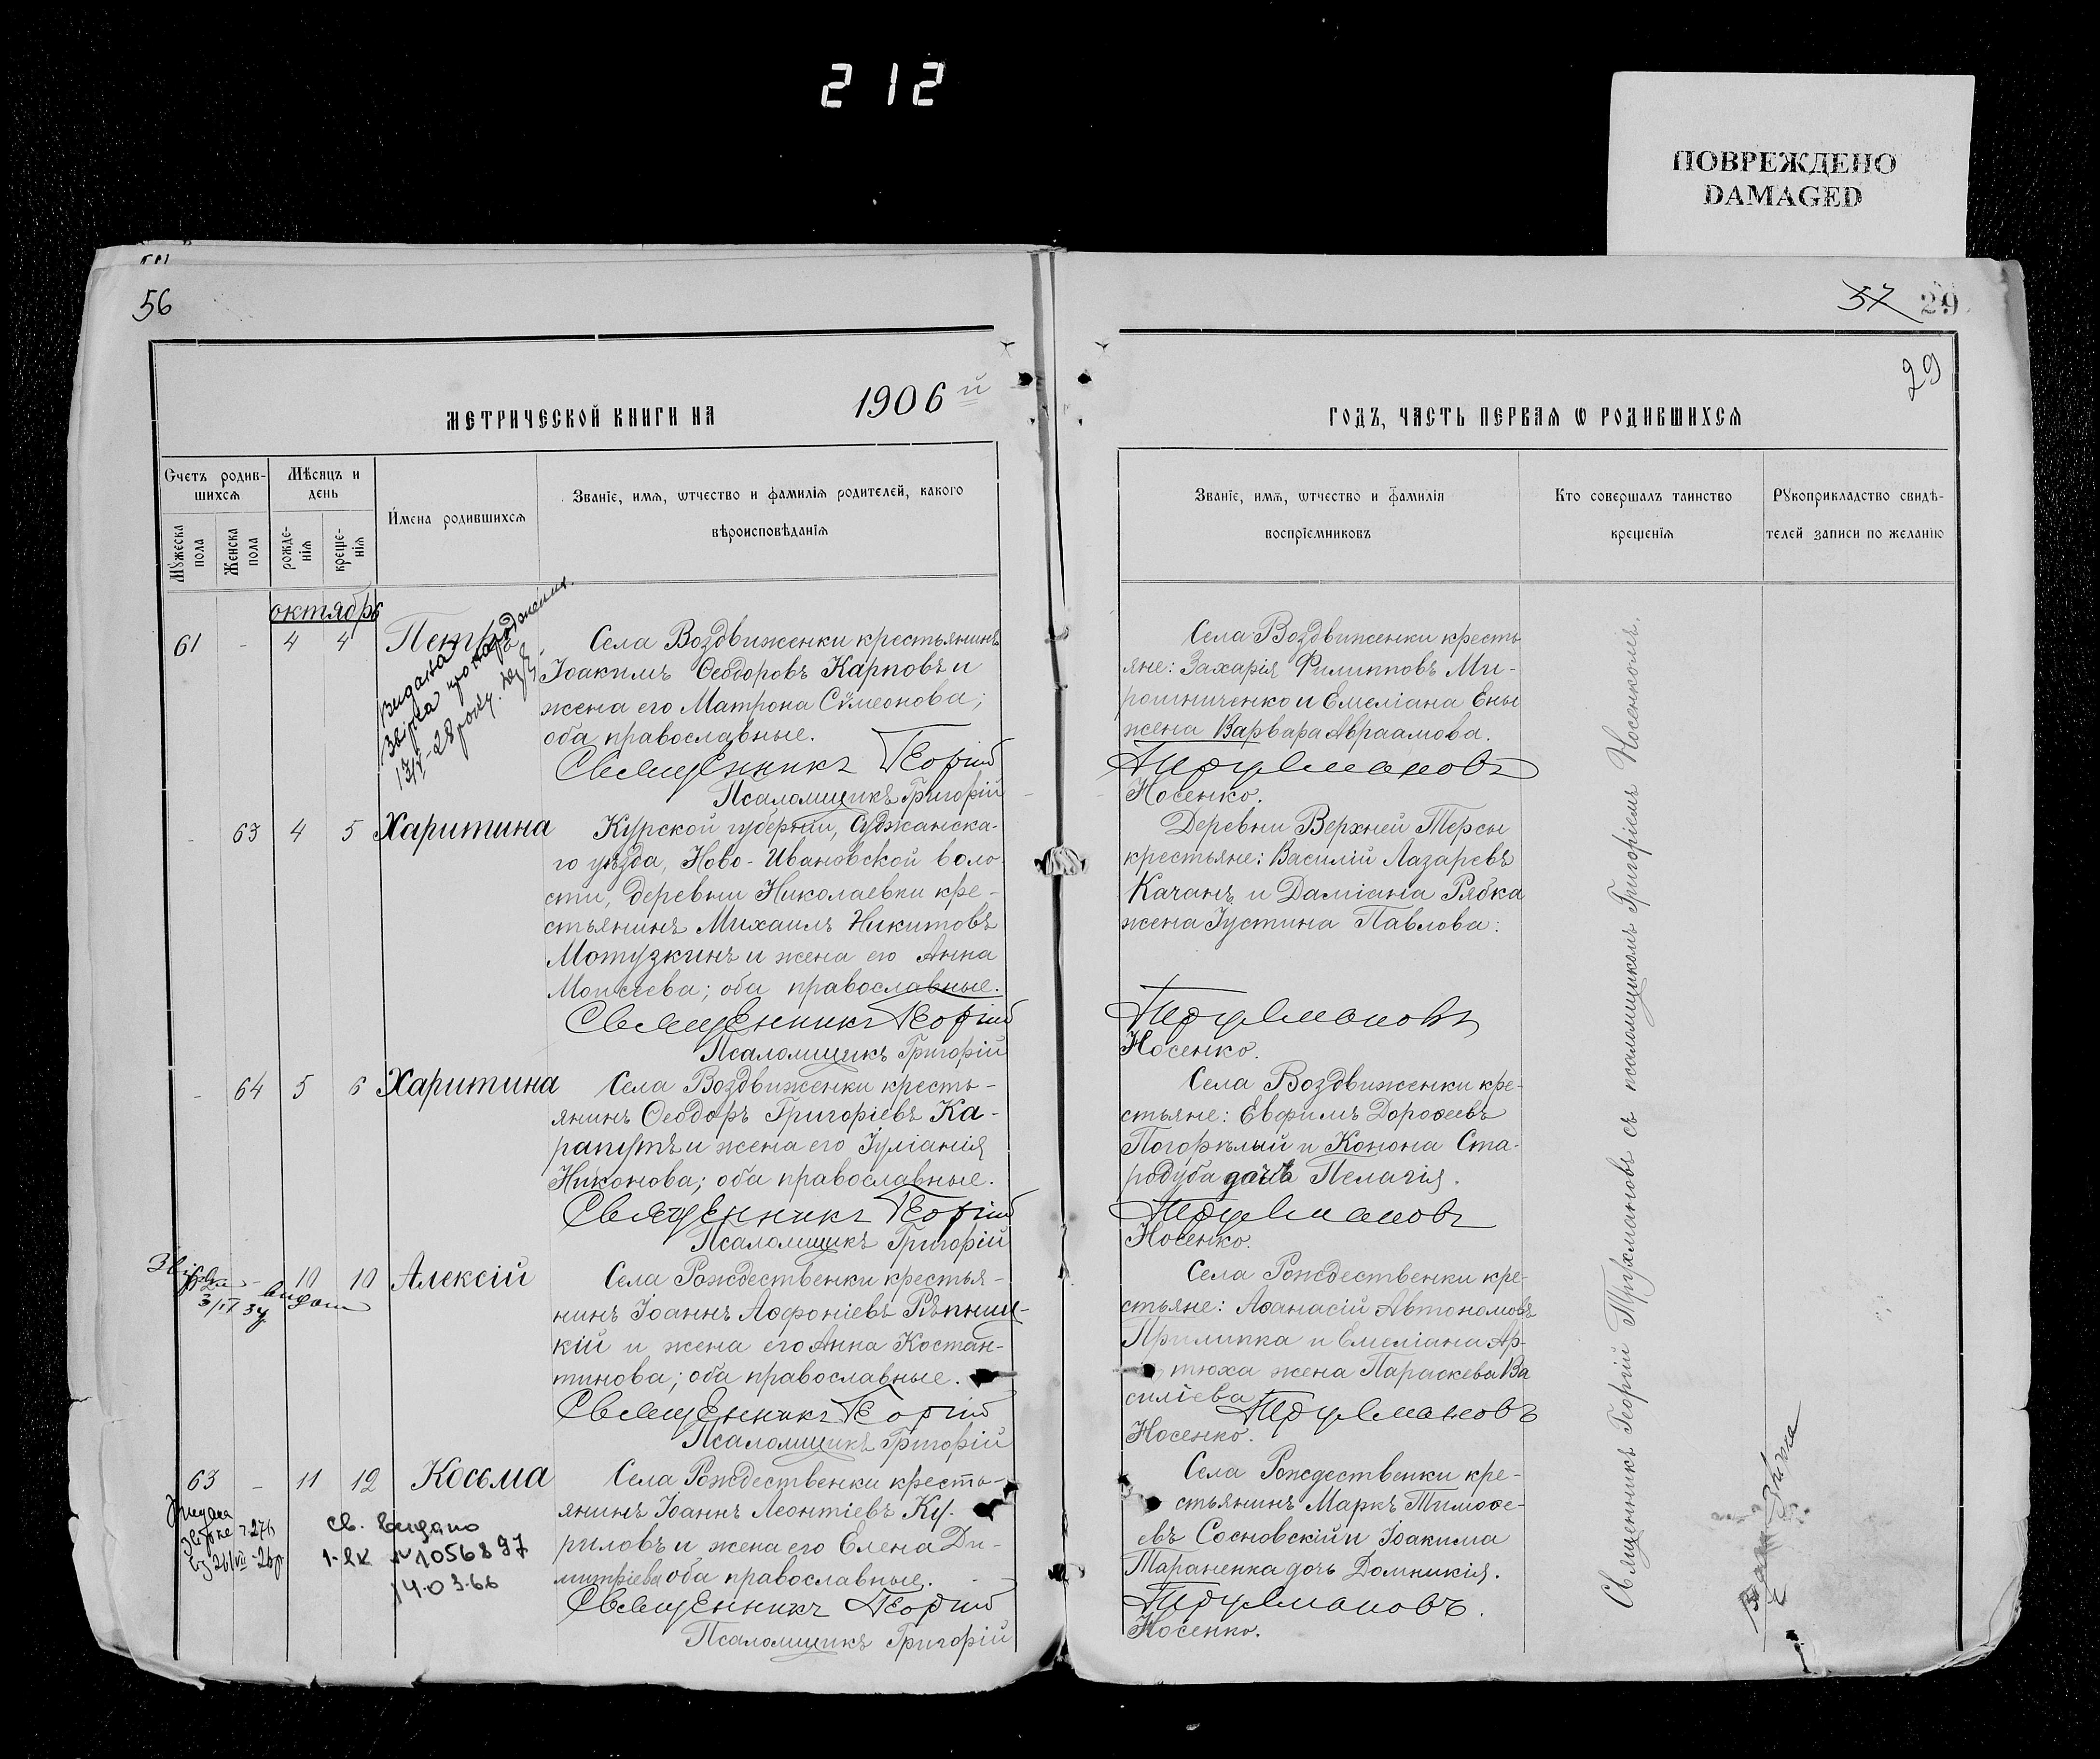 212
ПОВРЕЖДЕНО
DAMAGED
56
57 29
29
МЕТРИЧЕСКОЙ КНИГИ НА 1906й
ГОДЪ, ЧАСТЬ ПЕРВАЯ Ѡ РОДИВШИХСЯ
Счетъ родив-
шихся
Мѣсяцъ и
день
Мужеска
пола
Женска
пола
рожде-
нія
креще-
нія
Имена родившихся
Званіе, имя, ѡтчество и фамилія родителей, какого
вѣроисповѣданія
Званіе, имя, ѡтчество и фамилія
воспріемниковъ
Кто совершалъ таинство
крещенія
Рукоприкладство свидѣ-
телей записи по желанію
октябрь
61 - 4 4 Петръ
Села Воздвиженки крестьянинъ
Іоакимъ Ѳеодоровъ Карповъ и
жена его Матрона Сѵмеонова;
оба православные.
Священникъ Георгій
Псаломщикъ Григорій
Села Воздвиженки кресть
яне: Захарія Филипповъ Ми-
рошниченко и Емеліана Ены
жена Варвара Авраамова.
Трухмановъ
Носенко.
- 63 4 5 Харитина
Курской губерніи, Суджанска-
го уѣзда, Ново-Ивановской воло-
сти, деревни Николаевки кре-
стьянинъ Михаилъ Никитовъ
Мотузкинъ и жена его Анна
Моисеева; оба православные.
Священникъ Георгій
Псаломщикъ Григорій
Деревни Верхней Терсы
крестьяне: Василій Лазаревъ
Качанъ и Даміана Рябка
жена Іустина Павлова:
Трухмановъ
Носенко.
- 64 5 6 Харитина
Села Воздвиженки кресть-
янинъ Ѳеодоръ Григоріевъ Ка-
рапутъ и жена его Іуліанія
Никонова; оба православные.
Священникъ Георгій
Псаломщикъ Григорій
Села Воздвиженки кре-
стьяне: Евфимъ Дороѳеевъ
Погорѣлый и Конона Ста-
родуба дочь Пелагія.
Трухмановъ
Носенко.
- 10 10 Алексій
Села Рождественки крестья-
нинъ Іоаннъ Агѳоніевъ Рѣпниц-
кій и жена его Анна Костан-
тинова; оба православные.
Священникъ Георгій
Псаломщикъ Григорій
Села Рождественки кре-
стьяне: Аѳанасій Автономовъ
Прилипка и Емеліана Ар-
тюха жена Параскева Ва
силіева
Трухмановъ
Носенко.
63 - 11 12 Косьма
Села Рождественки кресть-
янинъ Іоаннъ Леонтіевъ Ку-
риловъ и жена его Елена Ди-
митріева оба православные.
Священникъ Георгій
Псаломщикъ Григорій
св. выдано
№ 1056897
14.03.66
Села Рождественки кре-
стьянинъ Маркъ Тимоѳе-
евъ Сосновскій и Іоакима
Тараненка дочь Домникія.
Трухмановъ.
Носенко.
Священникъ Георгій Трухмановъ съ псаломщикомъ Григоріемъ Носенкомъ.